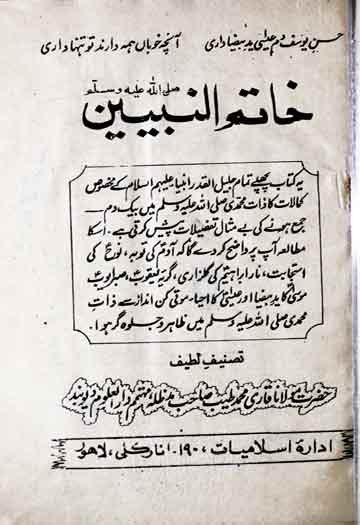 حسنِ یوسف دمِ عیسیٰ یدِ بیضا داری آنچہ خوباں ہمہ دارند تو تنہا داری
صلی اللہ علیہ وسلم
خاتم النبیین
یہ کتاب پچھلے تمام جلیل القدر انبیاء علیہم السلام کے مخصوص
کمالات کا ذات محمدی صلی اللہ علیہ وسلم میں بیک دم
جمع ہونے کی بے مثال تفصیلات پیش کرتی ہے۔ اسکا
مطالعہ آپ پر واضح کر دے گا کہ آدم کی توبہ، نوح کی
استجابت، نارِ ابراہیم کی گلزاری، گریہ یعقوب، صبر ایوب
موسیٰ کا ید بیضا اور عیسیٰ کا احیاء موتیٰ کن انداز سے ذات
محمدی صلی اللہ علیہ وسلم میں ظاہر و جلوہ گر ہوا۔
تصنیف لطیف
حضرت مولانا قاری محمد طیب صاحب مدظلہ مہتمم دارالعلوم دیوبند
ادارہ اسلامیات ۱۹۰، انارکلی، لاہور